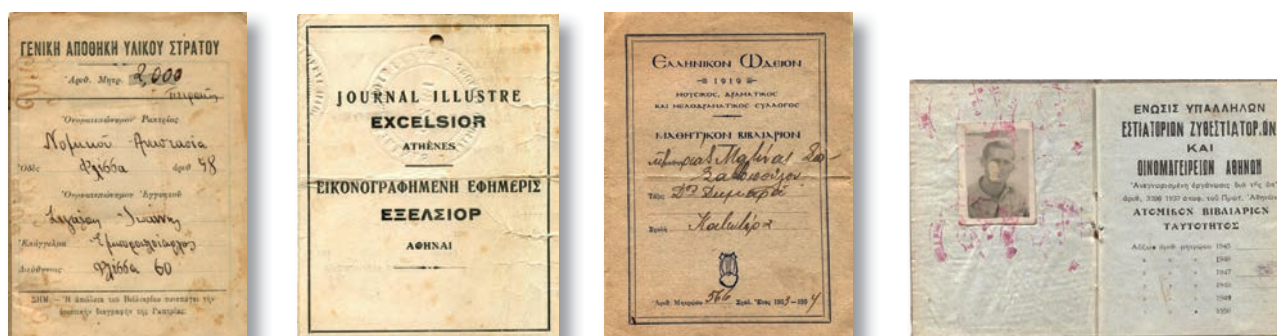 ΓΕΝΙΚΗ ΑΠΟΘΗΚΗ ΥΛΙΚΟΥ ΣΤΡΑΤΟΥ
Ἀριθ. Μητρ. 2,000
Ὀνοματεπώνυμον Ραπτρίας
Ὁδὸς Φλίσσα ἀριθ 58
Ὀνοματεπώνυμον Ἐγγυητοῦ
Ἰωάννη
Ἐπάγγελμα
Διεύθυνσις Φλίσσα 60
ΣΗΜ. — Ἡ ἀπώλεια τοῦ Βιβλιαρίου συνεπάγει τὴν
διαγραφὴν τῆς Ραπτρίας.
JOURNAL ILLUSTRE
EXCELSIOR
ATHÈNES
ΕΙΚΟΝΟΓΡΑΦΗΜΕΝΗ ΕΦΗΜΕΡΙΣ
ΕΞΕΛΣΙΟΡ
ΑΘΗΝΑΙ
ΕΛΛΗΝΙΚΟΝ ΩΔΕΙΟΝ
1919
ΜΟΥΣΙΚΟΣ, ΔΡΑΜΑΤΙΚΟΣ
ΚΑΙ ΜΕΛΟΔΡΑΜΑΤΙΚΟΣ ΣΥΛΛΟΓΟΣ
ΜΑΘΗΤΙΚΟΝ ΒΙΒΛΙΑΡΙΟΝ
Τάξις
Σχολὴ
Ἀριθ. Μητρώου 566 Σχολ. Ἔτος 1953–1954
ΕΝΩΣΙΣ ΥΠΑΛΛΗΛΩΝ
ΕΣΤΙΑΤΟΡΙΩΝ ΖΥΘΕΣΤΙΑΤΟΡ.ΩΝ
ΚΑΙ
ΟΙΝΟΜΑΓΕΙΡΕΙΩΝ ΑΘΗΝΩΝ
Ἀνεγνωρισμένη ὀργάνωσις διὰ τῆς ὑπ'
ἀριθ. 3200 1937 ἀποφ. τοῦ Πρωτ. Ἀθηνῶν
ΑΤΟΜΙΚΟΝ ΒΙΒΛΙΑΡΙΟΝ
ΤΑΥΤΟΤΗΤΟΣ
Αὔξων ἀριθ. μητρώου 1945
1946
1947
1948
1949
1950